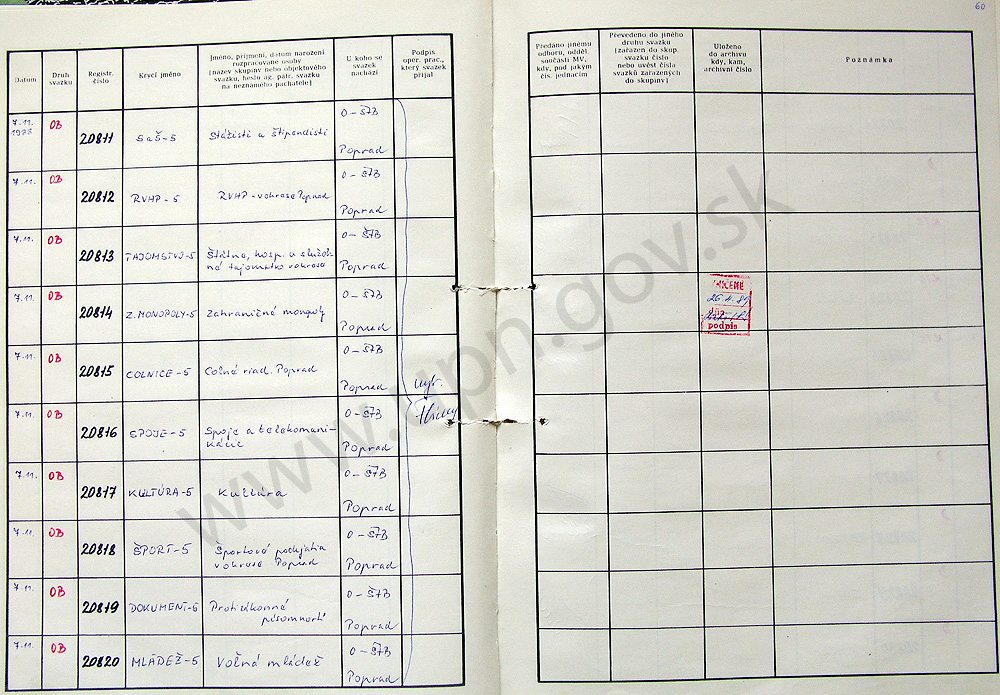 60
Datum
Druh
svazku
Registr.
číslo
Krycí jméno
Jméno, příjmení, datum narození
rozpracované osoby
[název skupiny nebo objektového
svazku, heslo ag. pátr. svazku
na neznámého pachatele]
U koho se
svazek
nachází
Podpis
oper. prac.,
který svazek
přijal
Předáno jinému
odboru, odděl.
součásti MV,
kdy, pod jakým
čís. jednacím
Převedeno do jiného
druhu svazku
[zařazen do skup.
svazku číslo
nebo uvést čísla
svazků zařazených
do skupiny]
Uloženo
do archivu
kdy, kam,
archivní číslo
Poznámka
7.11.
1988
OB
20811
SaŠ-5
Stážisti a štipendisti
O-ŠTB
Poprad
7.11.
OB
20812
RVHP-5
RVHP-v okrese Poprad
O-ŠTB
Poprad
7.11.
OB
20813
TAJOMSTVO-5
Štátne, hosp. a služob
né tajomstvo v okrese
O-ŠTB
Poprad
7.11.
OB
20814
Z.MONOPOLY-5
Zahraničné monpoly
O-ŠTB
Poprad
ZNIČENÉ
podpis
7.11.
OB
20815
COLNICE-5
Colné riad. Poprad
O-ŠTB
Poprad
7.11.
OB
20816
SPOJE-5
Spoje a telekomuni-
kácie
O-ŠTB
Poprad
7.11.
OB
20817
KULTÚRA-5
Kultúra
O-ŠTB
Poprad
7.11.
OB
20818
ŠPORT-5
Športové podujatia
v okrese Poprad
O-ŠTB
Poprad
7.11.
OB
20819
DOKUMENT-5
Protizákonné
písomnosti
O-ŠTB
Poprad
7.11.
OB
20820
MLÁDEŽ-5
Voľná mládež
O-ŠTB
Poprad
www.upn.gov.sk